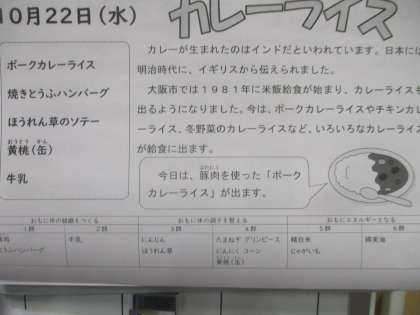 10月22日(水)
カレーライス
ポークカレーライス
焼きとうふハンバーグ
ほうれん草のソテー
おうとう かん
黄桃(缶)
牛乳
カレーが生まれたのはインドだといわれています。日本には
明治時代に、イギリスから伝えられました。
大阪市では1981年に米飯給食が始まり、カレーライスも
出るようになりました。今は、ポークカレーライスやチキンカレ
ーライス、冬野菜のカレーライスなど、いろいろなカレーライス
が給食に出ます。
ぶたにく
今日は、豚肉を使った「ポーク
カレーライス」が出ます。
おもに体の組織をつくる おもに体の調子を整える おもにエネルギーとなる
1群 2群 3群 4群 5群 6群
豚肉 牛乳 にんじん たまねぎ グリンピース 精白米 綿実油
とうふハンバーグ ほうれん草 にんにく コーン じゃがいも
黄桃(缶)